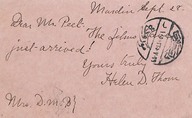 Mardin Sept. 21.
Dear Mr. Peet.
The Johns
just arrived!
Yours truly
Helen D. Thom
Mrs. D. M. B.